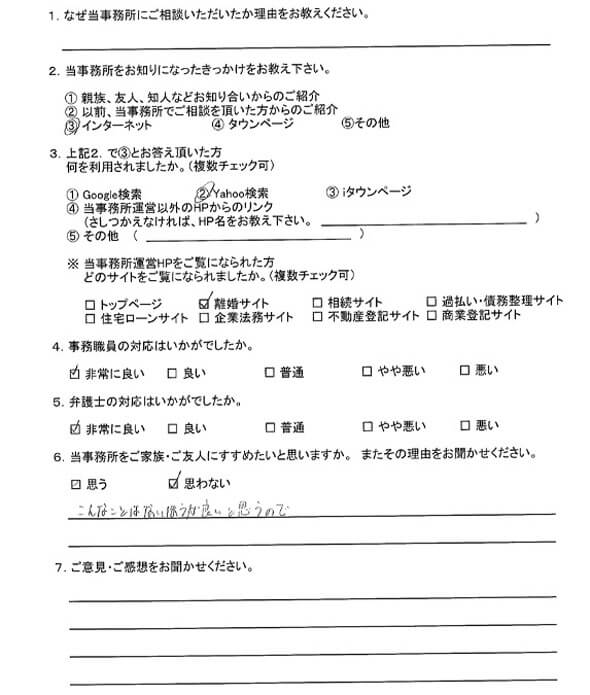 1. なぜ当事務所にご相談いただいたか理由をお教えください。
2. 当事務所をお知りになったきっかけをお教え下さい。
① 親族、友人、知人などお知り合いからのご紹介
② 以前、当事務所でご相談を頂いた方からのご紹介
③ インターネット ④ タウンページ ⑤その他
3. 上記2. で③とお答え頂いた方
何を利用されましたか。(複数チェック可)
① Google検索 ② Yahoo検索 ③ iタウンページ
④ 当事務所運営以外のHPからのリンク
(さしつかえなければ、HP名をお教え下さい。 )
⑤ その他 ( )
※ 当事務所運営HPをご覧になられた方
どのサイトをご覧になられましたか。(複数チェック可)
□ トップページ ☑ 離婚サイト □ 相続サイト □ 過払い・債務整理サイト
□ 住宅ローンサイト □ 企業法務サイト □ 不動産登記サイト □ 商業登記サイト
4. 事務職員の対応はいかがでしたか。
☑ 非常に良い □ 良い □ 普通 □ やや悪い □ 悪い
5. 弁護士の対応はいかがでしたか。
☑ 非常に良い □ 良い □ 普通 □ やや悪い □ 悪い
6. 当事務所をご家族・ご友人にすすめたいと思いますか。 またその理由をお聞かせください。
☑ 思う ☑ 思わない
こんなことはない ほうが良いと思うので
7. ご意見・ご感想をお聞かせください。